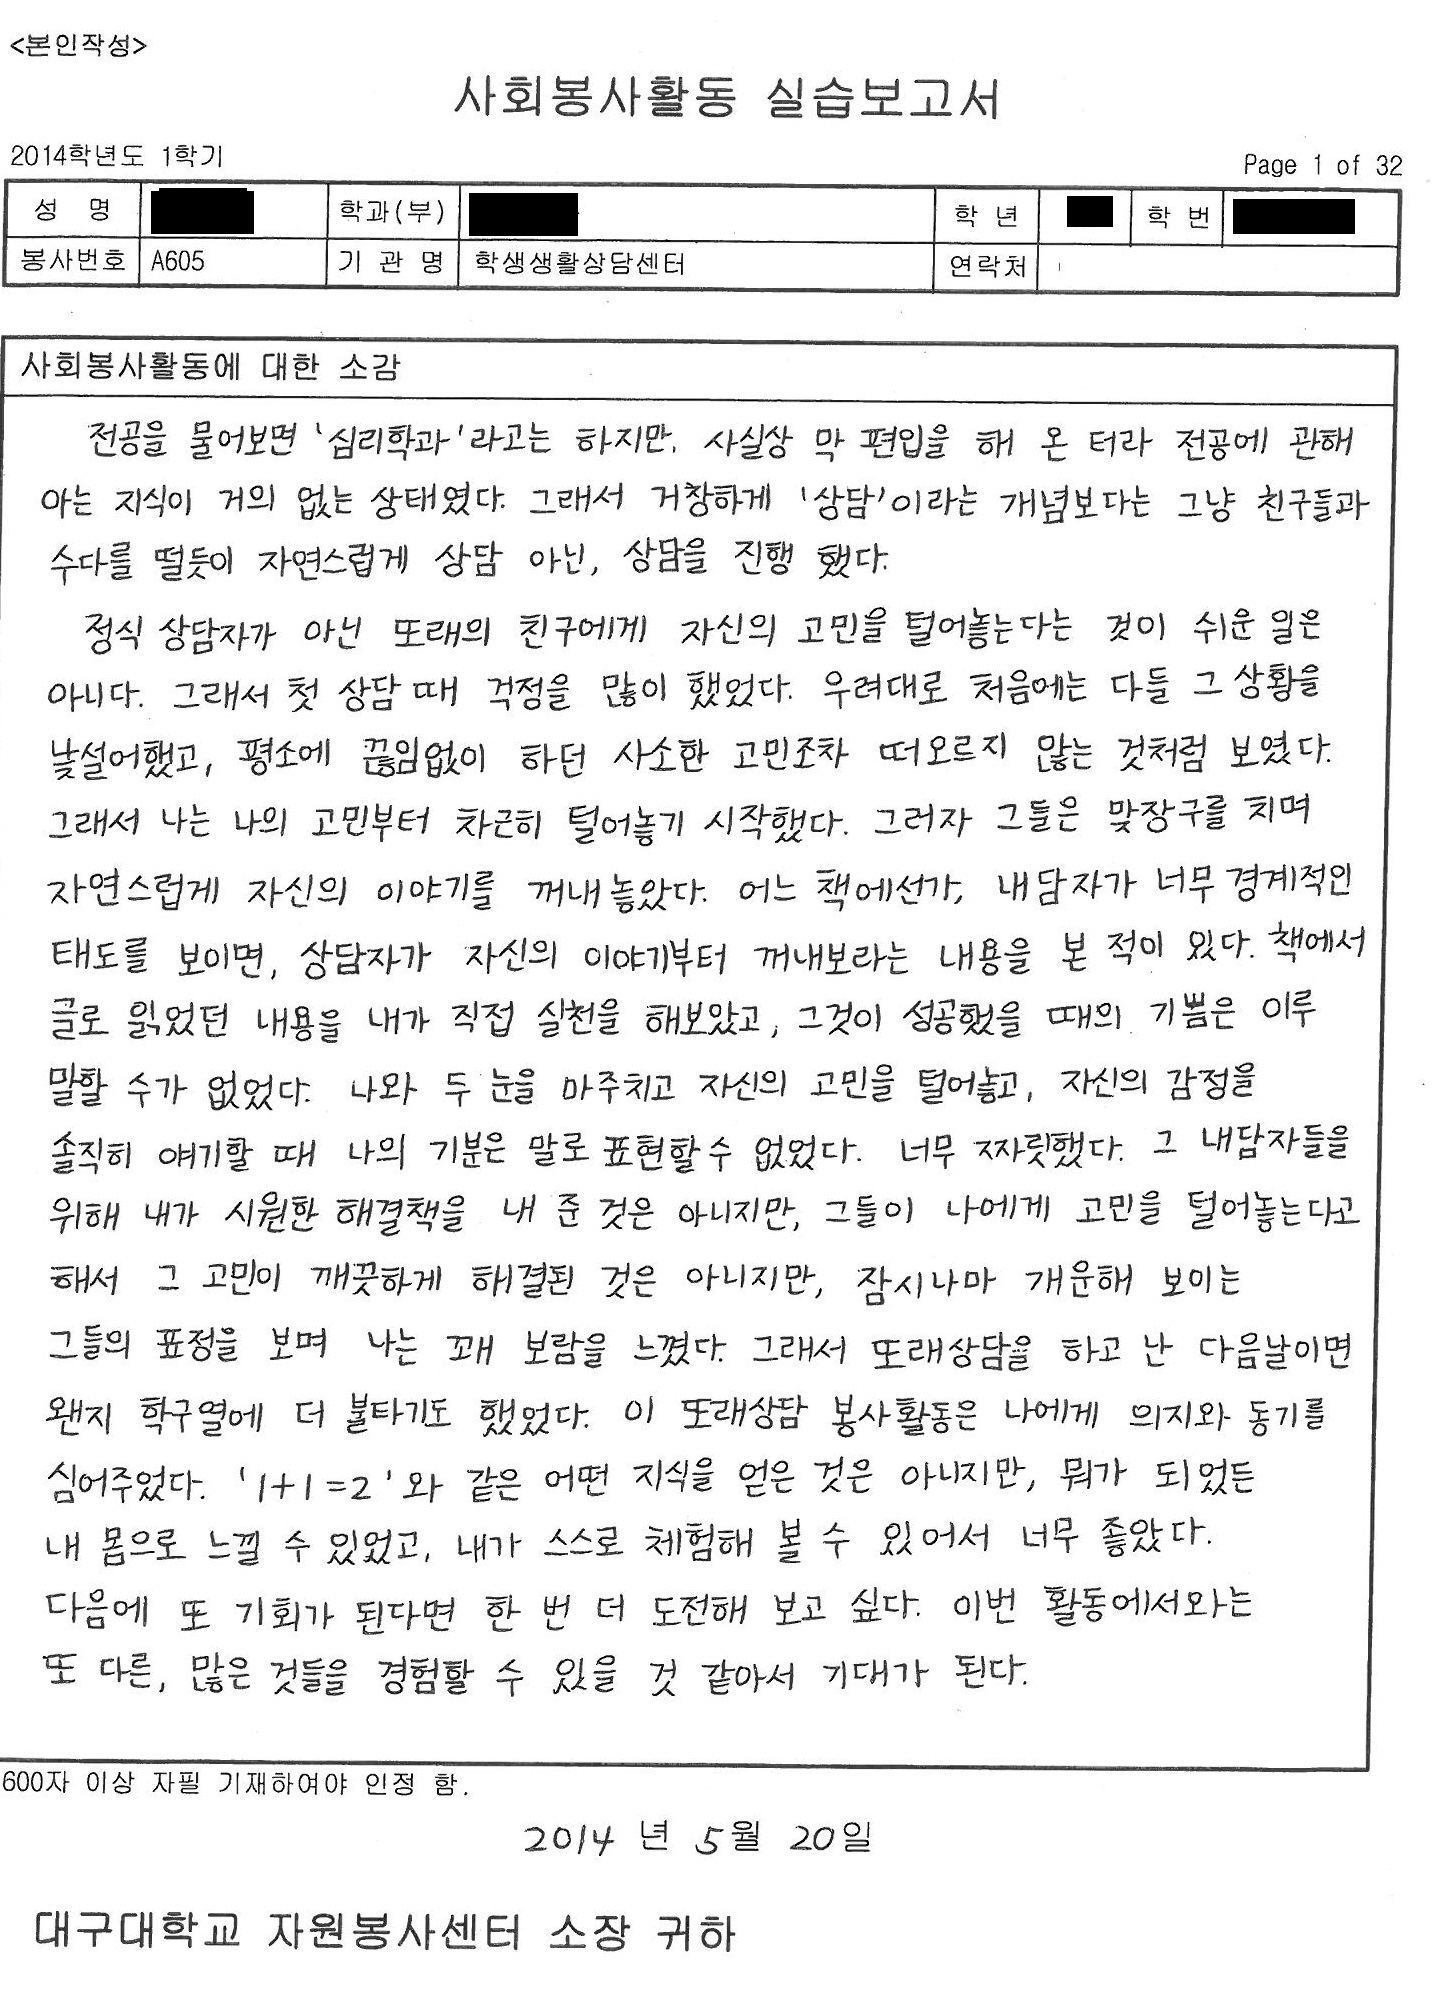 <본인작성>
사회봉사활동 실습보고서
2014학년도 1학기
Page 1 of 32
성 명 학과(부) 학 년 학 번
봉사번호 A605 기 관 명 학생생활상담센터 연락처
사회봉사활동에 대한 소감
전공을 물어보면 '심리학과'라고는 하지만, 사실상 막 편입을 해 온 터라 전공에 관해
아는 지식이 거의 없는 상태였다. 그래서 거창하게 '상담'이라는 개념보다는 그냥 친구들과
수다를 떨듯이 자연스럽게 상담 아닌, 상담을 진행 했다.
정식 상담자가 아닌 또래의 친구에게 자신의 고민을 털어놓는다는 것이 쉬운 일은
아니다. 그래서 첫 상담 때 걱정을 많이 했었다. 우려대로 처음에는 다들 그 상황을
낯설어했고, 평소에 끊임없이 하던 사소한 고민조차 떠오르지 않는 것처럼 보였다.
그래서 나는 나의 고민부터 차근히 털어놓기 시작했다. 그러자 그들은 맞장구를 치며
자연스럽게 자신의 이야기를 꺼내놓았다. 어느 책에선가, 내담자가 너무 경계적인
태도를 보이면, 상담자가 자신의 이야기부터 꺼내보라는 내용을 본 적이 있다. 책에서
글로 읽었던 내용을 내가 직접 실천을 해보았고, 그것이 성공했을 때의 기쁨은 이루
말할 수가 없었다. 나와 두 눈을 마주치고 자신의 고민을 털어놓고, 자신의 감정을
솔직히 얘기할 때 나의 기분은 말로 표현할 수 없었다. 너무 짜릿했다. 그 내담자들을
위해 내가 시원한 해결책을 내 준 것은 아니지만, 그들이 나에게 고민을 털어놓는다고
해서 그 고민이 깨끗하게 해결된 것은 아니지만, 잠시나마 개운해 보이는
그들의 표정을 보며 나는 꽤 보람을 느꼈다. 그래서 또래상담을 하고 난 다음날이면
왠지 학구열에 더 불타기도 했었다. 이 또래상담 봉사활동은 나에게 의지와 동기를
심어주었다. '1+1=2'와 같은 어떤 지식을 얻은 것은 아니지만, 뭐가 되었든
내 몸으로 느낄 수 있었고, 내가 스스로 체험해 볼 수 있어서 너무 좋았다.
다음에 또 기회가 된다면 한 번 더 도전해 보고 싶다. 이번 활동에서와는
또 다른, 많은 것들을 경험할 수 있을 것 같아서 기대가 된다.
600자 이상 자필 기재하여야 인정 함.
2014 년 5월 20일
대구대학교 자원봉사센터 소장 귀하